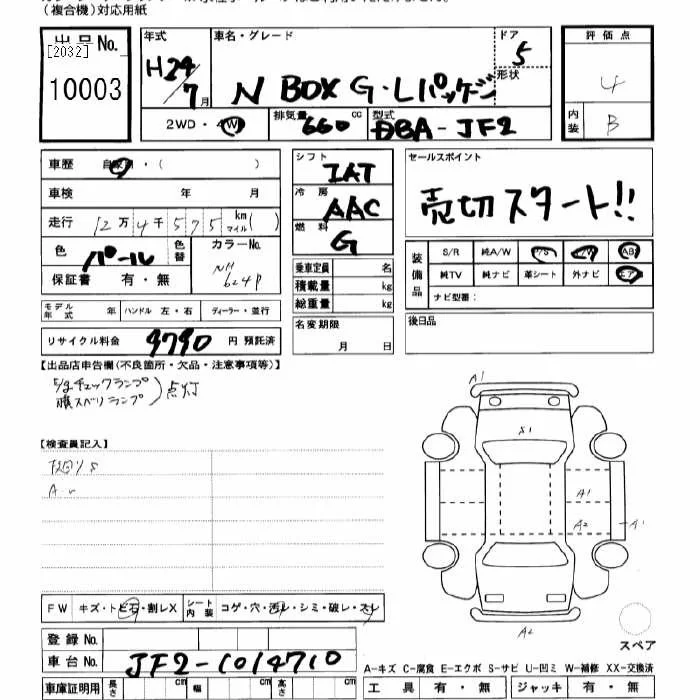 （複合機）対応用紙
出品No.
[2032]
10003
年式
H24/7月
車名・グレード
N BOX G・Lパッケージ
ドア
5
形状
評価点
4
内装
B
2WD・4W
排気量 660 cc
型式 DBA-JF2
車歴 自家用・( )
車検 年 月
走行 12万4千575 km マイル( )
色 パール
色替
カラーNo.
NH624P
保証書 有・無
モデル年式 年
ハンドル 左・右
ディーラー・並行
リサイクル料金 9790 円 預託済
シフト IAT
冷房 AAC
燃料 G
乗車定員 名
積載量 kg
総重量 kg
名変期限
月 日
セールスポイント
売切スタート!!
装備品
S/R 純A/W P/S P/W AB
純TV 純ナビ 革シート 外ナビ エア
ナビ型番：
後日品
【出品店申告欄(不良箇所・欠品・注意事項等)】
チェックランプ
横スベリランプ
点灯
【検査員記入】
下廻りS
A
FW キズ・トビ石・割レX
シート内装 コゲ・穴・汚レ・シミ・破レ・スレ
登録No.
車台No. JF2-1014710
車庫証明用 長さ cm 幅 cm 高さ cm
A1
S1
A1
A2
A1
A2
スペア
A-キズ C-腐食 E-エクボ S-サビ U-凹ミ W-補修 XX-交換済
工具 有・無 ジャッキ 有・無